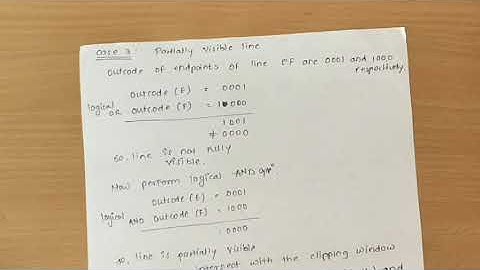 Case 3: Partially visible line
Outcode of endpoints of line EF are 0001 and 1000
respectively.
outcode (E) = 0001
logical OR outcode (F) = 1000
1001
≠ 0000
so, line is not fully
visible.
Now perform logical AND opn
outcode (E) = 0001
logical AND outcode (F) = 1000
0000
so, line is partially visible
intersect with the clipping window
and